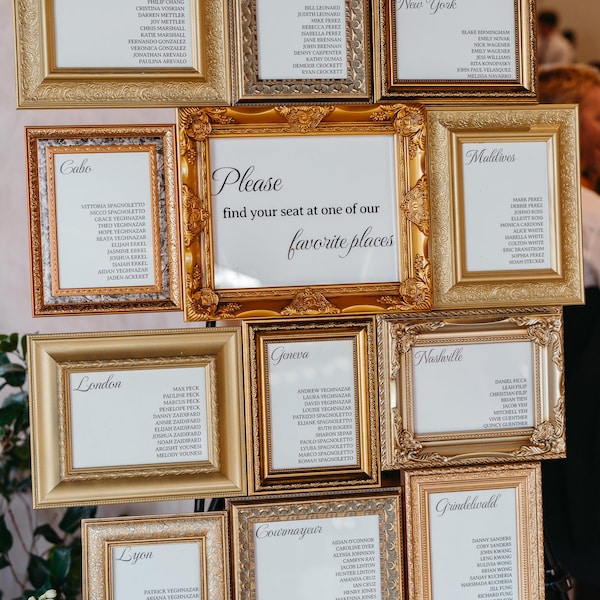 PHILIP CHANG
CRISTINA VOSKIAN
DARREN METTLER
JOY METTLER
KATIE MARSHALL
FERNANDO GONZALEZ
VERONICA GONZALEZ
JONATHAN AREVALO
PAULINA AREVALO
BILL LEONARD
JUDITH LEONARD
MIKE PEREZ
REBECCA PEREZ
ISABELLA PEREZ
JANE BRENNAN
JOHN BRENNAN
DENNY CARPENTER
DEMERIE CROCKETT
RYAN CROCKETT
New York
BLAKE BIRMINGHAM
EMILY NOVAK
NICK WAGENER
EMILY WAGENER
JESS WILLIAMS
RITA KONOPASKY
JOHN PAUL VELASQUEZ
MELISSA NAVARRO
Cabo
VITTORIA SPAGNOLETTO
NICCO SPAGNOLETTO
GRACE YEGHNAZAR
THEO YEGHNAZAR
HOPE YEGHNAZAR
REATA YEGHNAZAR
ELIJAH ERKEL
JASMINE ERKEL
JOSHUA ERKEL
ISAIAH ERKEL
AIDAN YEGHNAZAR
JADEN ACKERET
Please
find your seat at one of our
favorite places
Maldives
MARK PEREZ
DEBBIE PEREZ
JOHNO ROSS
ELLIOTT ROSS
MONICA CARDONE
ALICE WHITE
ISABELLA WHITE
COLTON WHITE
ERIC BRANSTROM
SOPHIA PEREZ
NOAH STECKER
London
MAX PECK
PAULINE PECK
MARCUS PECK
PENELOPE PECK
DANNY ZAIDIFARD
ANNIE ZAIDIFARD
ELIJAH ZAIDIFARD
JOSHUA ZAIDIFARD
NOAH ZAIDIFARD
ARGISHT YOUNESI
MELODY YOUNESI
Geneva
ANDREW YEGHNAZAR
LAURA YEGHNAZAR
DAVID YEGHNAZAR
LOUISE YEGHNAZAR
PATRIZIO SPAGNOLETTO
ELIANE SPAGNOLETTO
RUTH ROGERS
SHARON SEPAR
PAOLO SPAGNOLETTO
LYDIA SPAGNOLETTO
MARCO SPAGNOLETTO
ROMAN SPAGNOLETTO
Nashville
DANIEL FICCA
LEAH FILIP
CHRISTIAN FILIP
BRIAN TIEN
JACOB YEH
MITCHELL YEH
VIVIE GUENTHER
QUINCY GUENTHER
Lyon
PATRICK YEGHNAZAR
ARIANA YEGHNAZAR
Courmayeur
AIDAN O'CONNOR
CAROLINE DYER
ALYSIA JOHNSON
CAMRYN RAY
JACOB LINTON
HUNTER LINTON
AMANDA LINTON
IAN CRUZ
JANET CRUZ
HENRY JONES
MAKENNA JONES
Grindelwald
DANNY SANDERS
CORY SANDERS
JOHN KWANG
LENG KWANG
RUILIN THOMAS
BRIAN THOMAS
SANJAY KUCHERIA
HARSMADA KUCHERIA
SHAAN KUCHERIA
JOEY RICHARD
RICHARD FUNG